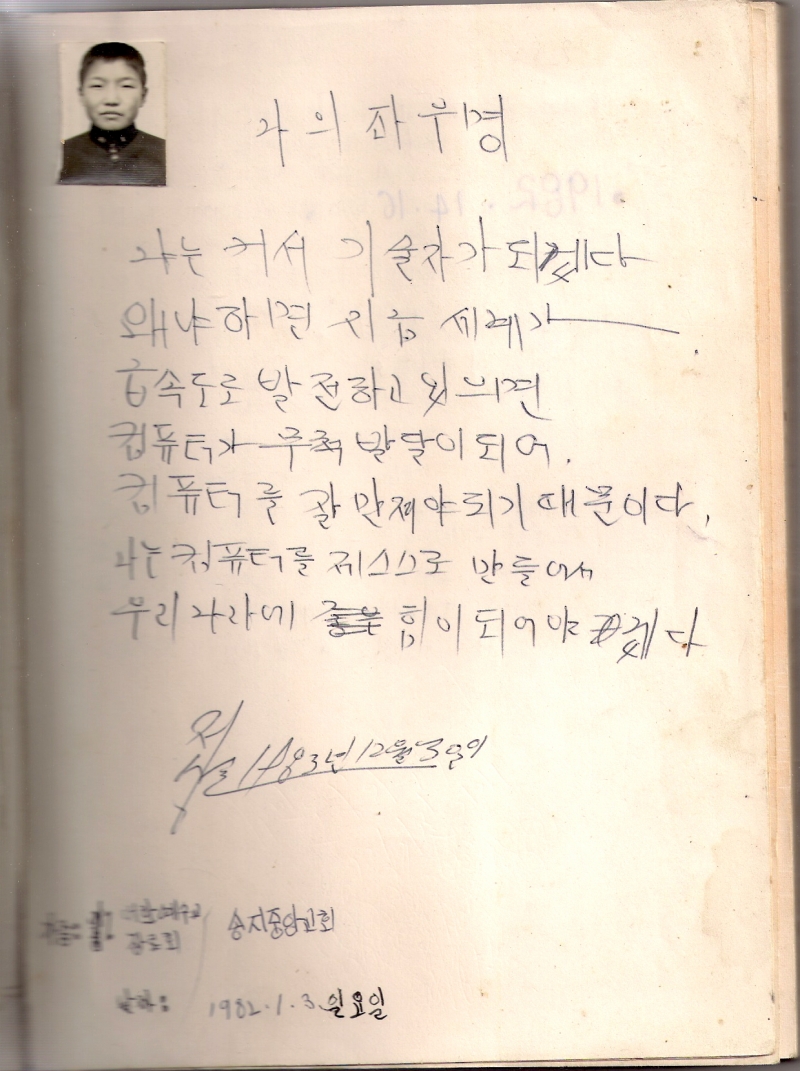 나의 좌우명
나는 커서 기술자가 되겠다
왜냐하면 지금 세계가
급속도로 발전하고 있으며
컴퓨터가 무척 발달이 되어.
컴퓨터를 잘 만져야되기 때문이다.
나는 컴퓨터를 제스스로 만들어서
우리나라에 힘이 되어야 겠다
1983년 12월 3일
대한예수교
장로회 / 송지중앙교회
날자: 1982.1.3. 일요일